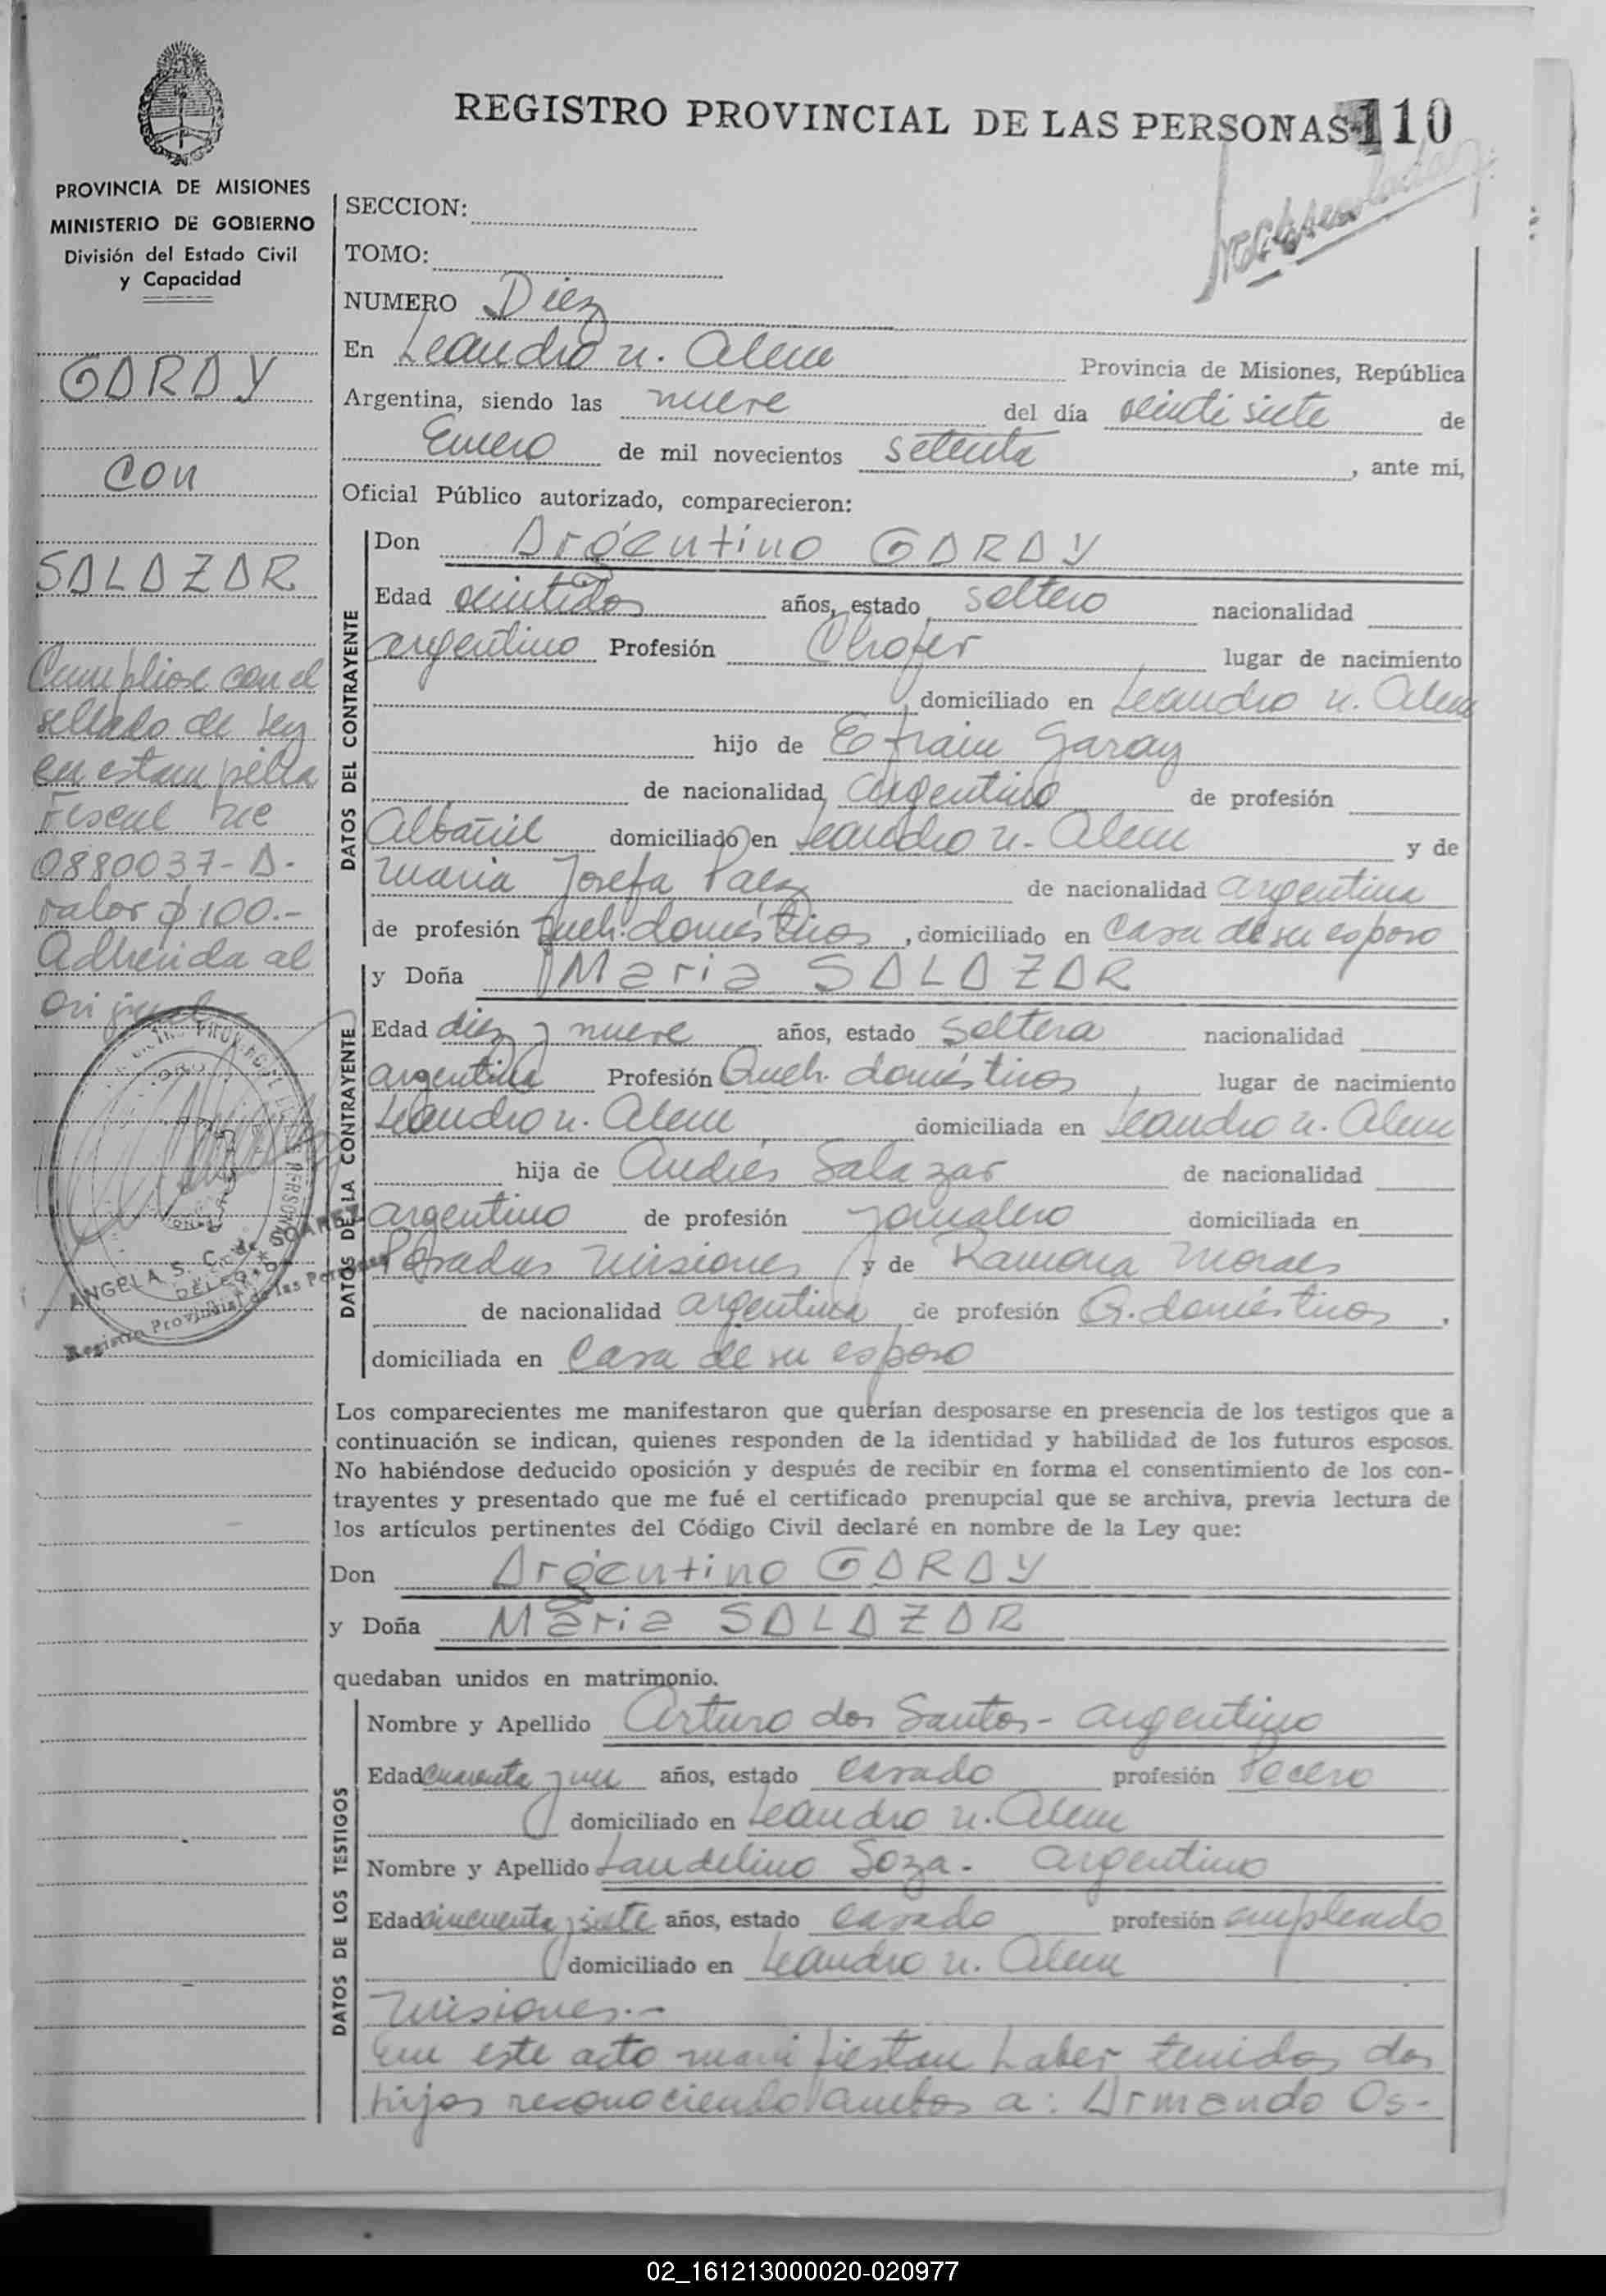 REGISTRO PROVINCIAL DE LAS PERSONAS 110
PROVINCIA DE MISIONES
MINISTERIO DE GOBIERNO
División del Estado Civil
y Capacidad
GARAY
con
SALAZAR
Cumpliose con el
sellado de ley
en estampilla
Fiscal
0880037-A-
valor $ 100.-
Adherida al
original
ANGELA S. C. de SOAREZ
DELEGADA
Registro Provincial de las Personas
SECCION:
TOMO:
NUMERO Diez
En Leandro n. Alem Provincia de Misiones, República
Argentina, siendo las nueve del día veinti siete de
Enero de mil novecientos setenta, ante mi,
Oficial Público autorizado, comparecieron:
DATOS DEL CONTRAYENTE
Don Argentino GARAY
Edad veintidos años, estado soltero nacionalidad
argentino Profesión Chofer lugar de nacimiento
domiciliado en Leandro n. Alem
hijo de Efrain Garay
de nacionalidad argentino de profesión
Albañil domiciliado en Leandro n. Alem y de
Maria Josefa Paez de nacionalidad argentina
de profesión Queh. domésticos, domiciliado en Casa de su esposo
DATOS DE LA CONTRAYENTE
y Doña Maria SALAZAR
Edad diez y nueve años, estado Soltera nacionalidad
argentina Profesión Queh. domésticos, lugar de nacimiento
Leandro n. Alem, domiciliada en Leandro n. Alem
hija de Andrés Salazar de nacionalidad
argentino de profesión Jornalero domiciliada en
Posadas Misiones y de Ramona Moraes
de nacionalidad argentina de profesión Q. domésticos,
domiciliada en Casa de su esposo
Los comparecientes me manifestaron que querían desposarse en presencia de los testigos que a
continuación se indican, quienes responden de la identidad y habilidad de los futuros esposos.
No habiéndose deducido oposición y después de recibir en forma el consentimiento de los con-
trayentes y presentado que me fué el certificado prenupcial que se archiva, previa lectura de
los artículos pertinentes del Código Civil declaré en nombre de la Ley que:
Don Argentino GARAY
y Doña Maria SALAZAR
quedaban unidos en matrimonio.
DATOS DE LOS TESTIGOS
Nombre y Apellido Arturo dos Santos - argentino
Edad cuarenta y un años, estado casado profesión Pocero
domiciliado en Leandro n. Alem
Nombre y Apellido Laudelino Soza - argentino
Edad cincuenta y siete años, estado casado profesión empleado
domiciliado en Leandro n. Alem
Misiones.-
En este acto manifiestan haber tenidos dos
hijos reconociendo ambos a: Armando Os-
02_161213000020-020977